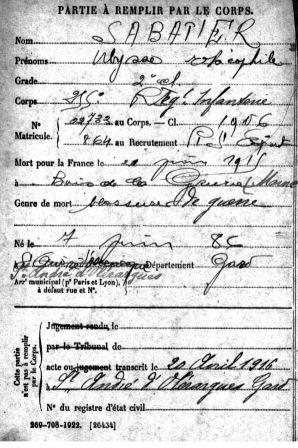 PARTIE À REMPLIR PAR LE CORPS.
Nom SABATIER
Prénoms Ulysse Théophile
Grade 2e cl.
Corps 255e Rég. Infanterie
N° 02733 au Corps. — Cl. 1906
Matricule. 864 au Recrutement
Mort pour la France le juin 1915
à Bois de la (Marne)
Genre de mort blessures de guerre
Né le 7 juin 86
St André d'Olérargues Département Gard
Arr' municipal (pr Paris et Lyon),
à défaut rue et N°.
Cette partie
n'est pas à remplir
par le Corps.
Jugement rendu, le
par le Tribunal de
acte ou jugement transcrit le 20 Avril 1916
à St André d'Olérargues Gard
N° du registre d'état civil
269-708-1922. [26434]